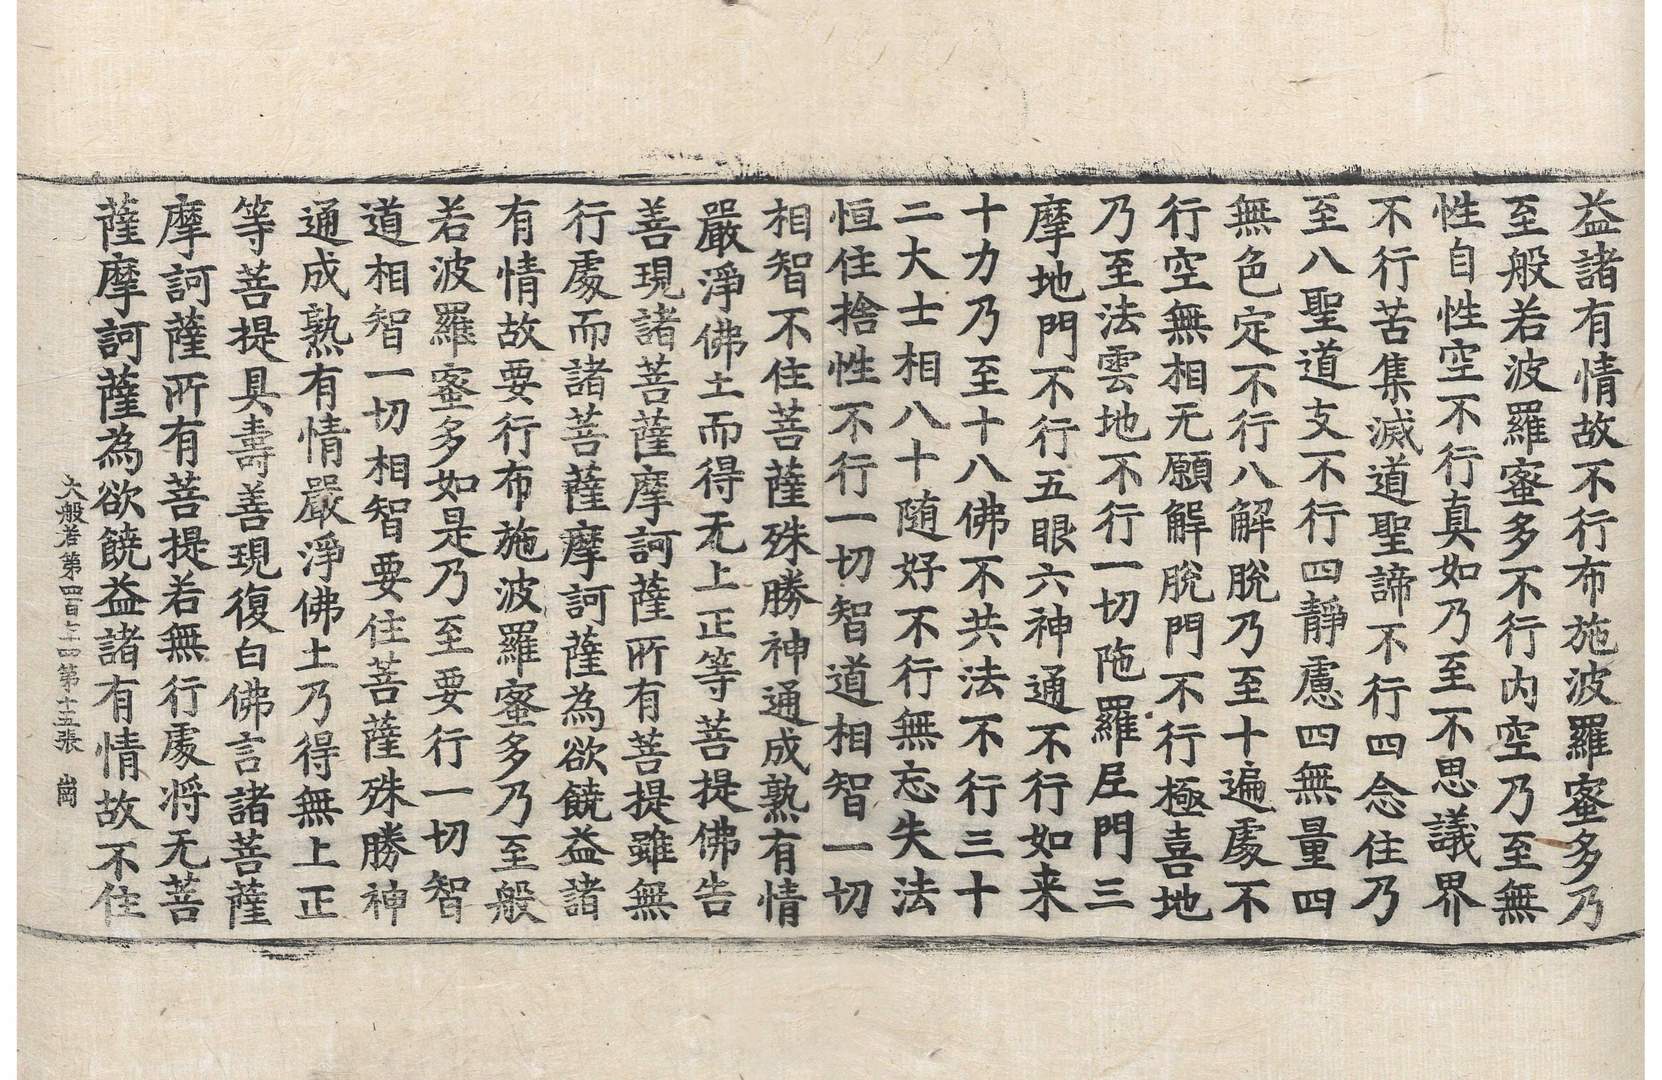 益諸有情故不行布施波羅蜜多乃
至般若波羅蜜多不行内空乃至無
性自性空不行真如乃至不思議界
不行苦集滅道聖諦不行四念住乃
至八聖道支不行四靜慮四無量四
無色定不行八解脫乃至十遍處不
行空無相无願解脫門不行極喜地
乃至法雲地不行一切陁羅尼門三
摩地門不行五眼六神通不行如来
十力乃至十八佛不共法不行三十
二大士相八十随好不行無忘失法
恒住捨性不行一切智道相智一切
相智不住菩薩殊勝神通成熟有情
嚴淨佛土而得无上正等菩提佛告
善現諸菩薩摩訶薩所有菩提雖無
行處而諸菩薩摩訶薩為欲饒益諸
有情故要行布施波羅蜜多乃至般
若波羅蜜多如是乃至要行一切智
道相智一切相智要住菩薩殊勝神
通成熟有情嚴淨佛土乃得無上正
等菩提具壽善現復白佛言諸菩薩
摩訶薩所有菩提若無行處将无菩
薩摩訶薩為欲饒益諸有情故不住
大般若第四百七十四第十五張 崗